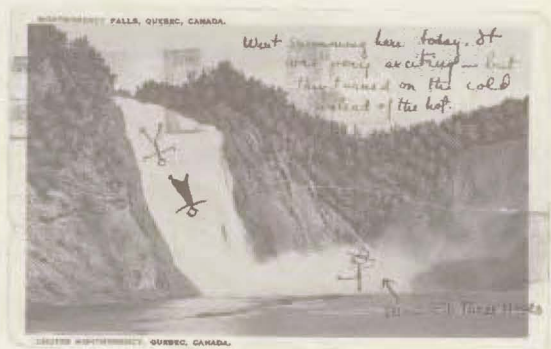 MONTMORENCY FALLS, QUEBEC, CANADA.
Went swimming here today. It
was very exciting — but
they turned on the cold
instead of the hot.
QUEBEC, CANADA.